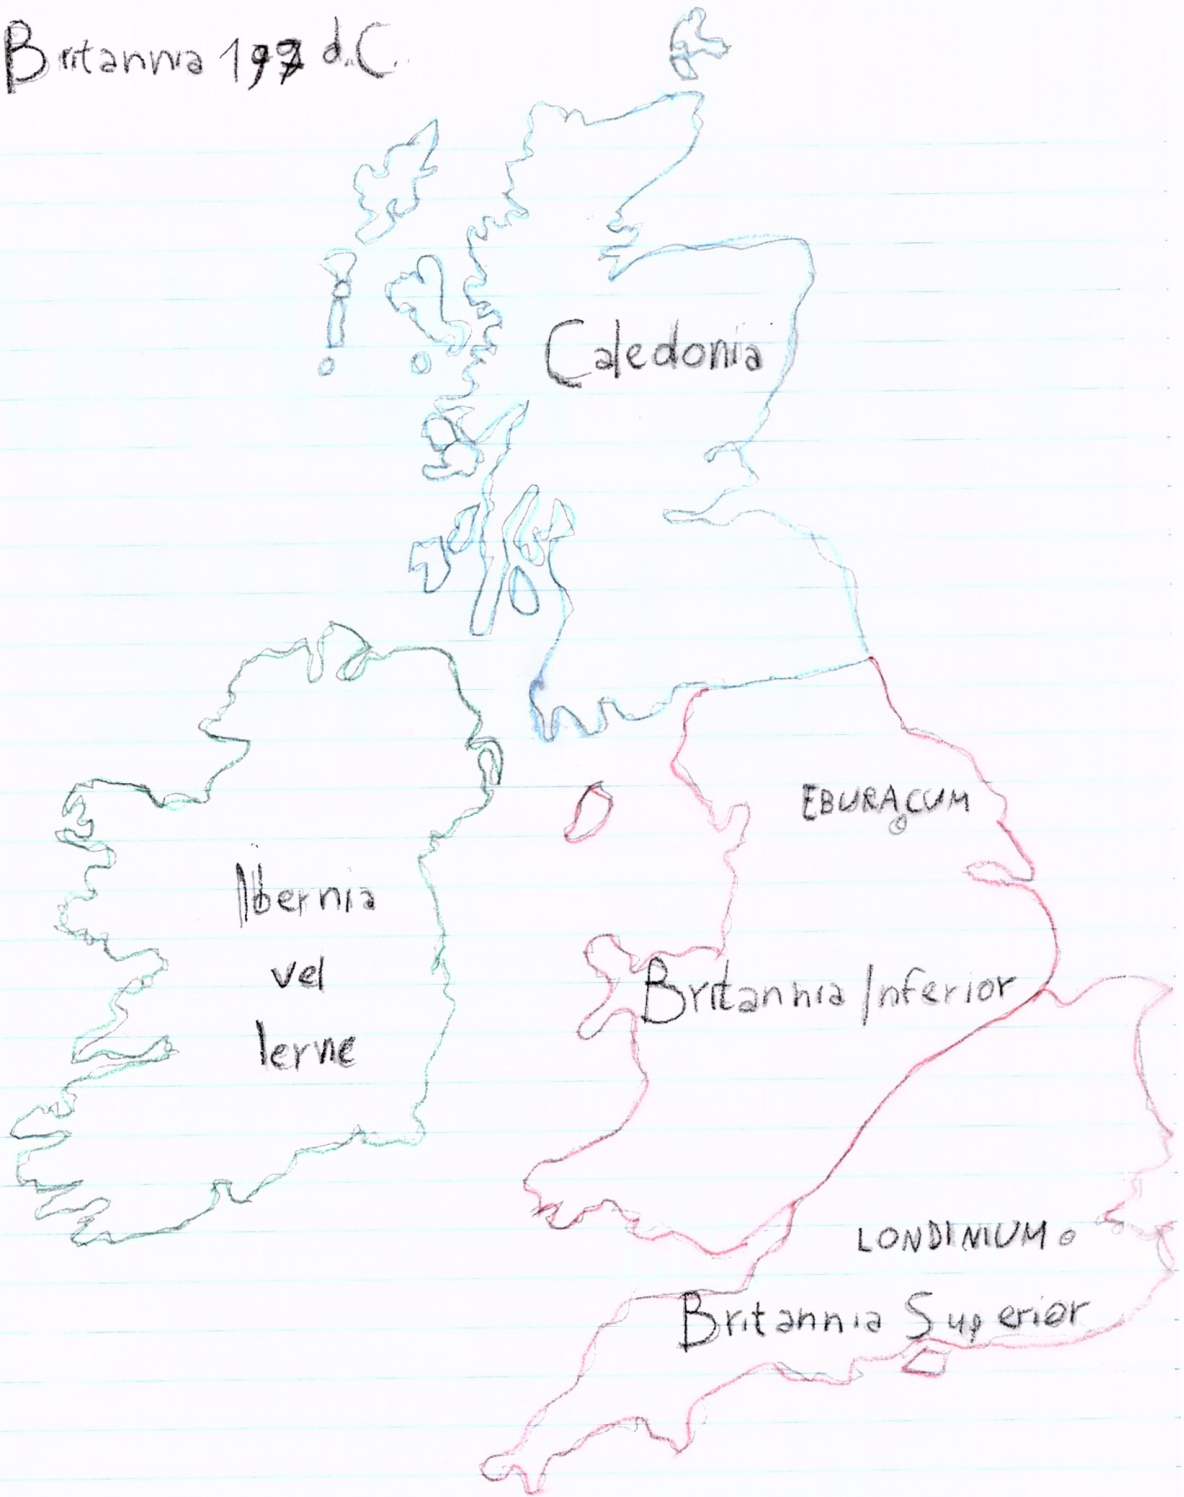 Britannia 197 d.C.
Caledonia
EBURACUM
Ibernia
vel
Ierne
Britannia Inferior
LONDINIUM
Britannia Superior